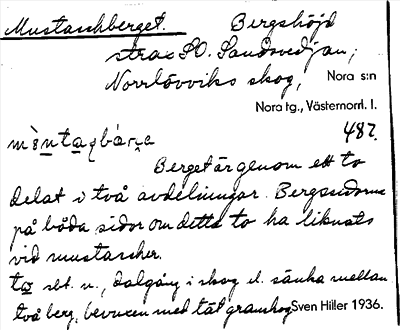 Mustaschberget. Bergshöjd
strax SO. Sandsvedjan,
Norrlövviks skog, Nora s:n
Nora tg., Västernorrl. l.
487.
Berget är genom ett to
delat i två avdelningar. Bergssidorna
på båda sidor om detta to ha liknats
vid mustascher.
to sbt. n., dalgång i skog el. sänka mellan
två berg, bevuxen med tät granskog Sven Hiller 1936.